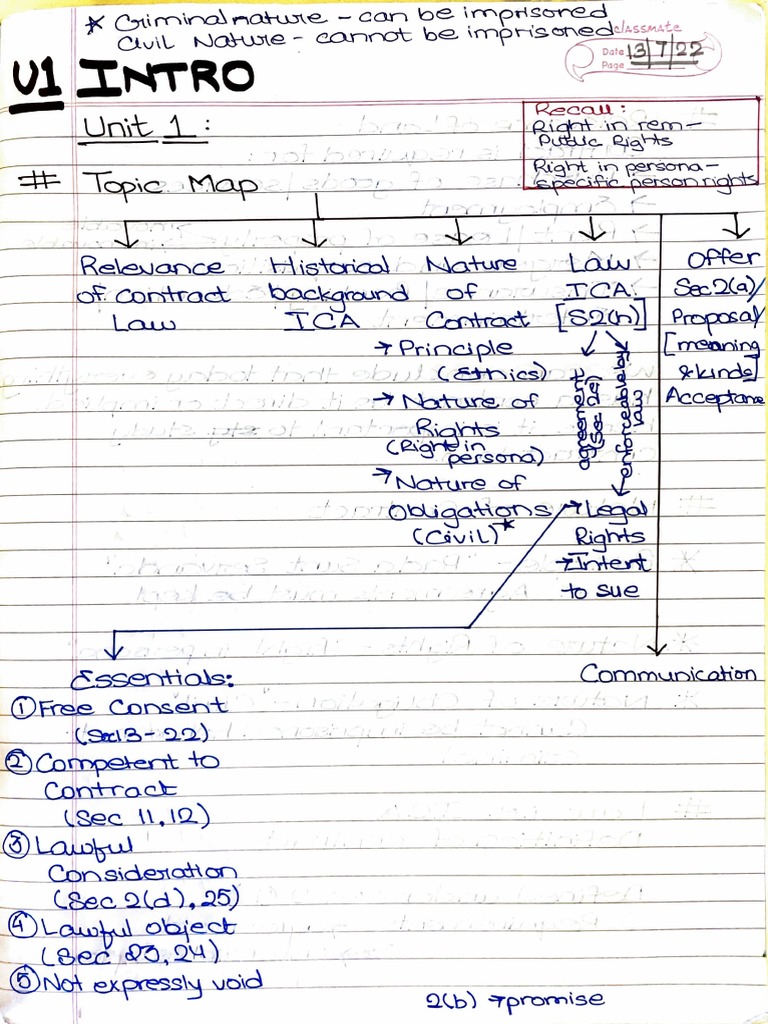 * Criminal nature - can be imprisoned
Civil Nature - cannot be imprisoned
classmate
Date 13/7/22
Page
U1 INTRO
Unit 1:
Recall:
Right in rem -
Public Rights
Right in persona -
specific person rights
# Topic Map
Relevance
of contract
Law
Historical
background
ICA
Nature
of
Contract
→ Principle
(Ethics)
→ Nature of
Rights
(Right in
persona)
→ Nature of
Obligations
(Civil)*
Law
ICA
[S2(h)]
agreement
(Sec 2(e))
enforceable by
law
→ Legal
Rights
→ Intent
to sue
Offer
Sec 2(a)/
Proposal/
[meaning
& kinds]
Acceptane
Communication
Essentials:
① Free Consent
(Sec 13-22)
② Competent to
Contract
(Sec 11,12)
③ Lawful
Consideration
(Sec 2(d), 25)
④ Lawful object
(Sec 23,24)
⑤ Not expressly void
2(b) → promise